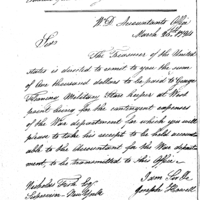 W.D. Accountants Office
March 26th 1794
Sir
The Treasurer of the United
States is directed to remit to you the sum
of two thousand dollars to be paid to George
Fleming Military Store keeper at West
point being for the contingent expences
of the War department for which you will
please to take his accept to be held accounta
ble to the Accountant for the War depart
ment to be transmitted to this Office
I am Sir &c
Nicholas Fish Esq
Joseph Howell
Supervisor New York